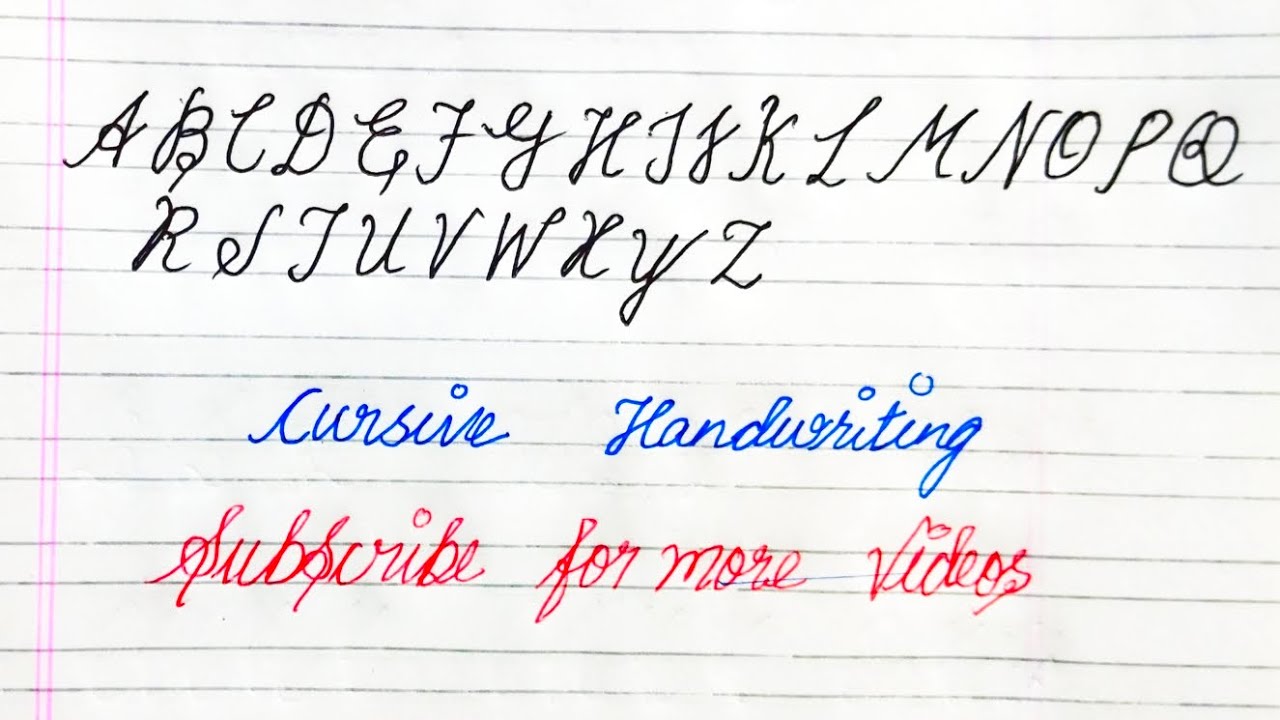 A B C D E F G H I J K L M N O P Q
R S T U V W X Y Z
Cursive Handwriting
Subscribe for more Videos